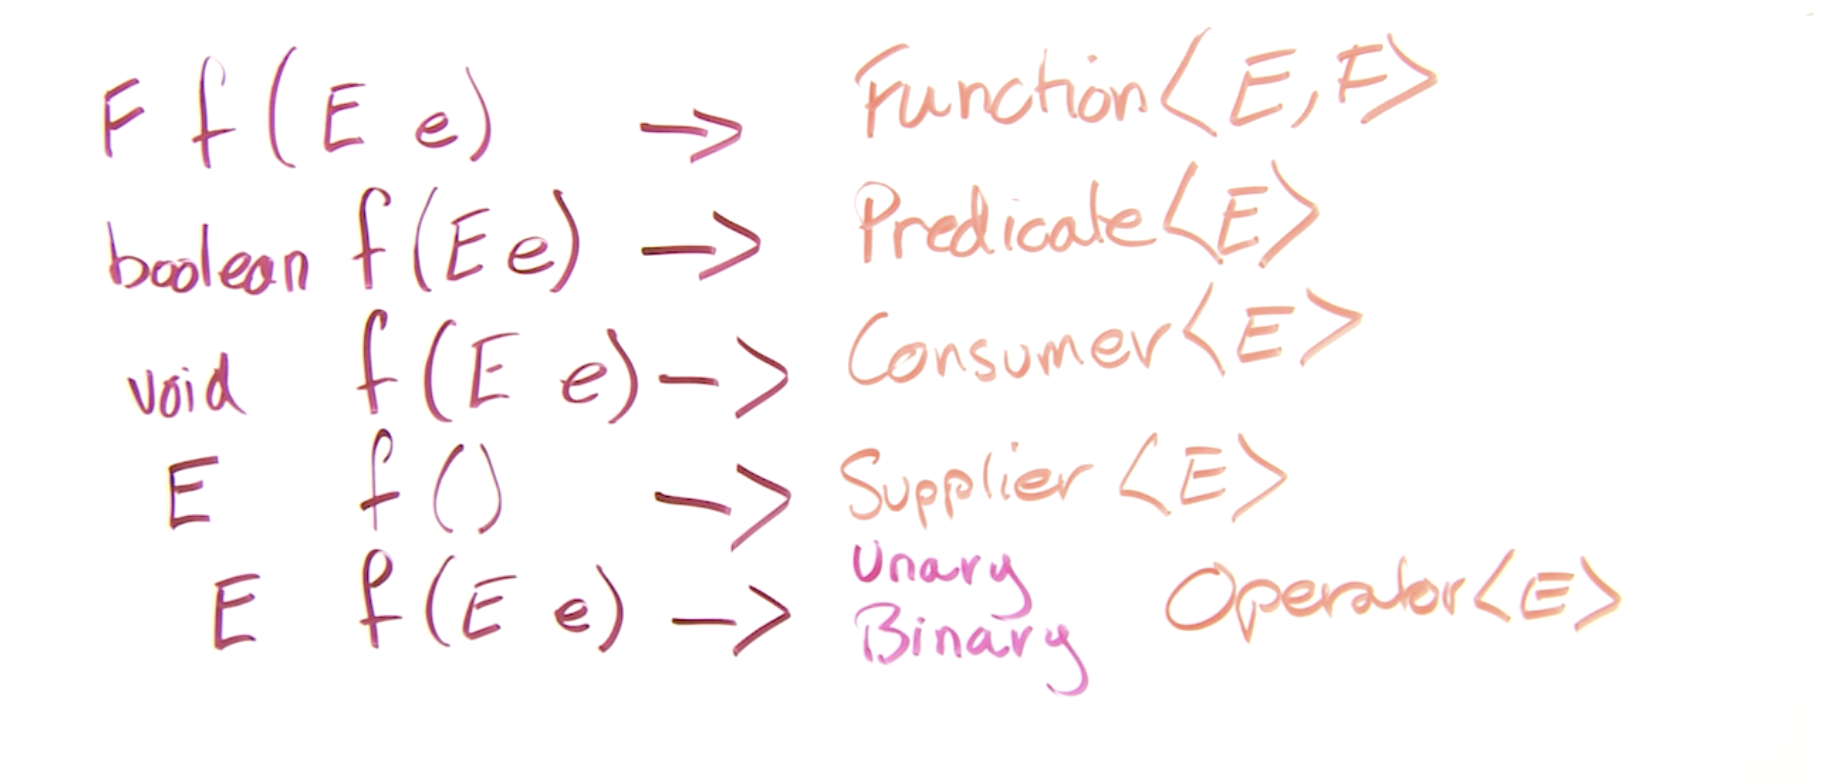 F f(E e) -> Function<E, F>
boolean f(E e) -> Predicate<E>
void f(E e) -> Consumer<E>
E f() -> Supplier <E>
E f(E e) -> Unary Operator<E>
Binary